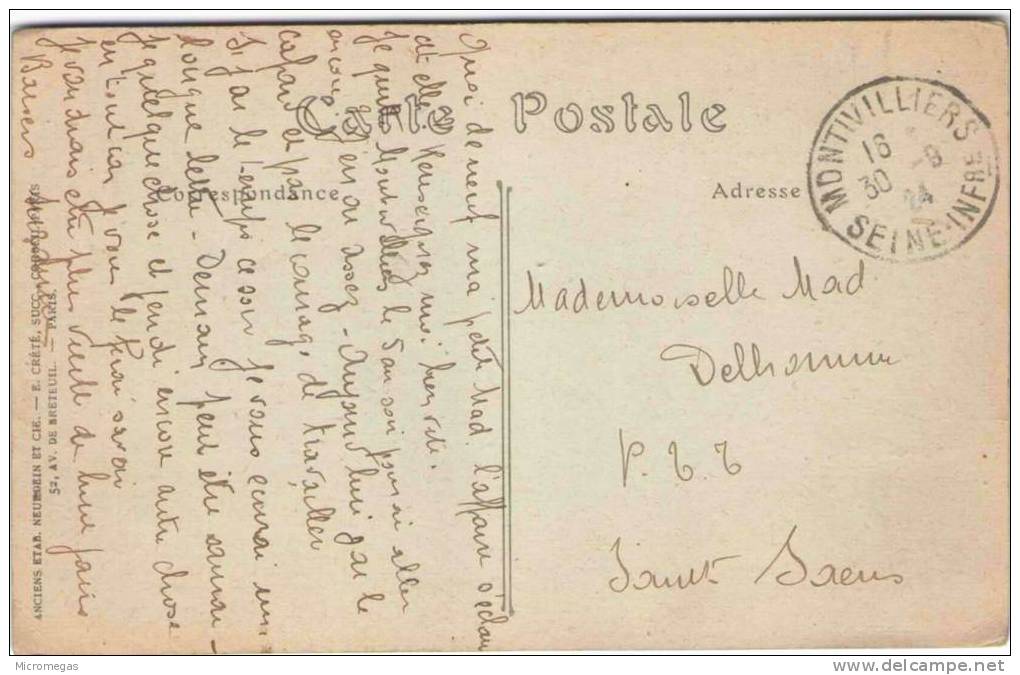 Carte Postale
Correspondance
Adresse
MONTIVILLIERS
16
30 -8
24
SEINE-INFRE
Mademoiselle Mad
Delhomme
P.T.T
Saint Saens
Quoi de neuf ma petite Mad. l'affaire
elle Renseignez moi bien vite.
Je quitte Montivilliers le 5 au soir
encore assez - Aujourd'hui j'ai le
cafard et pas le courage de travailler
Si j'ai le temps ce soir je vous ecrirai une
longue lettre - Demain peut être
je quelque chose et jeudi encore autre chose
en tout cas je vous le ferai savoir
Je voudrais etre plus vieille de huit jours
Baisers
ANCIENS ETAB. NEURDEIN ET CIE. — E. CRÉTÉ, SUCC.
52, AV. DE BRETEUIL. — PARIS.
Micromegas
delcampe.net